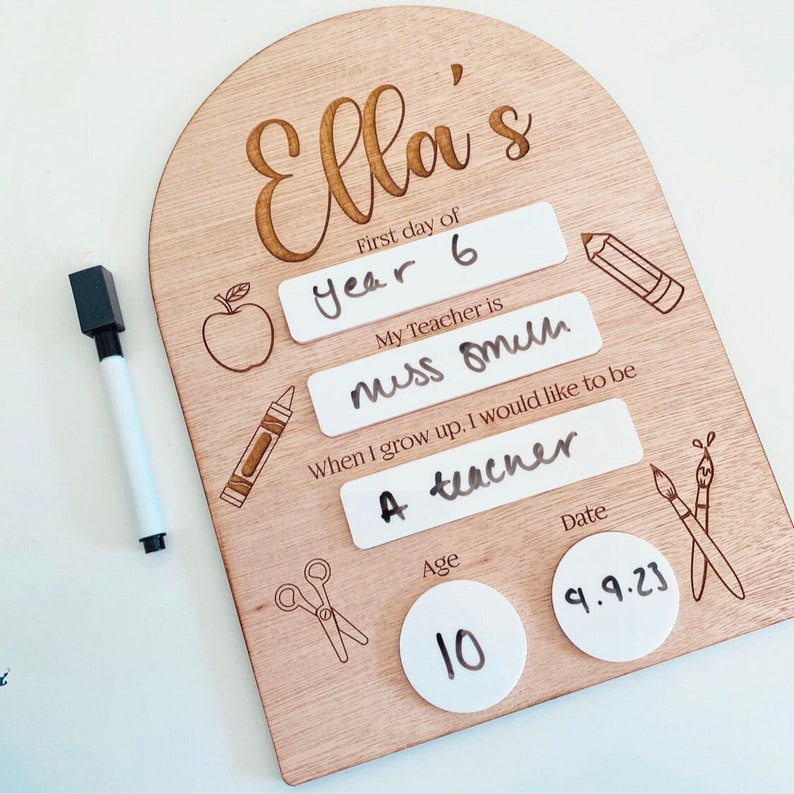 Ella's
First day of
Year 6
My Teacher is
Miss Smith
When I grow up, I would like to be
A teacher
Age
Date
10
9.9.23